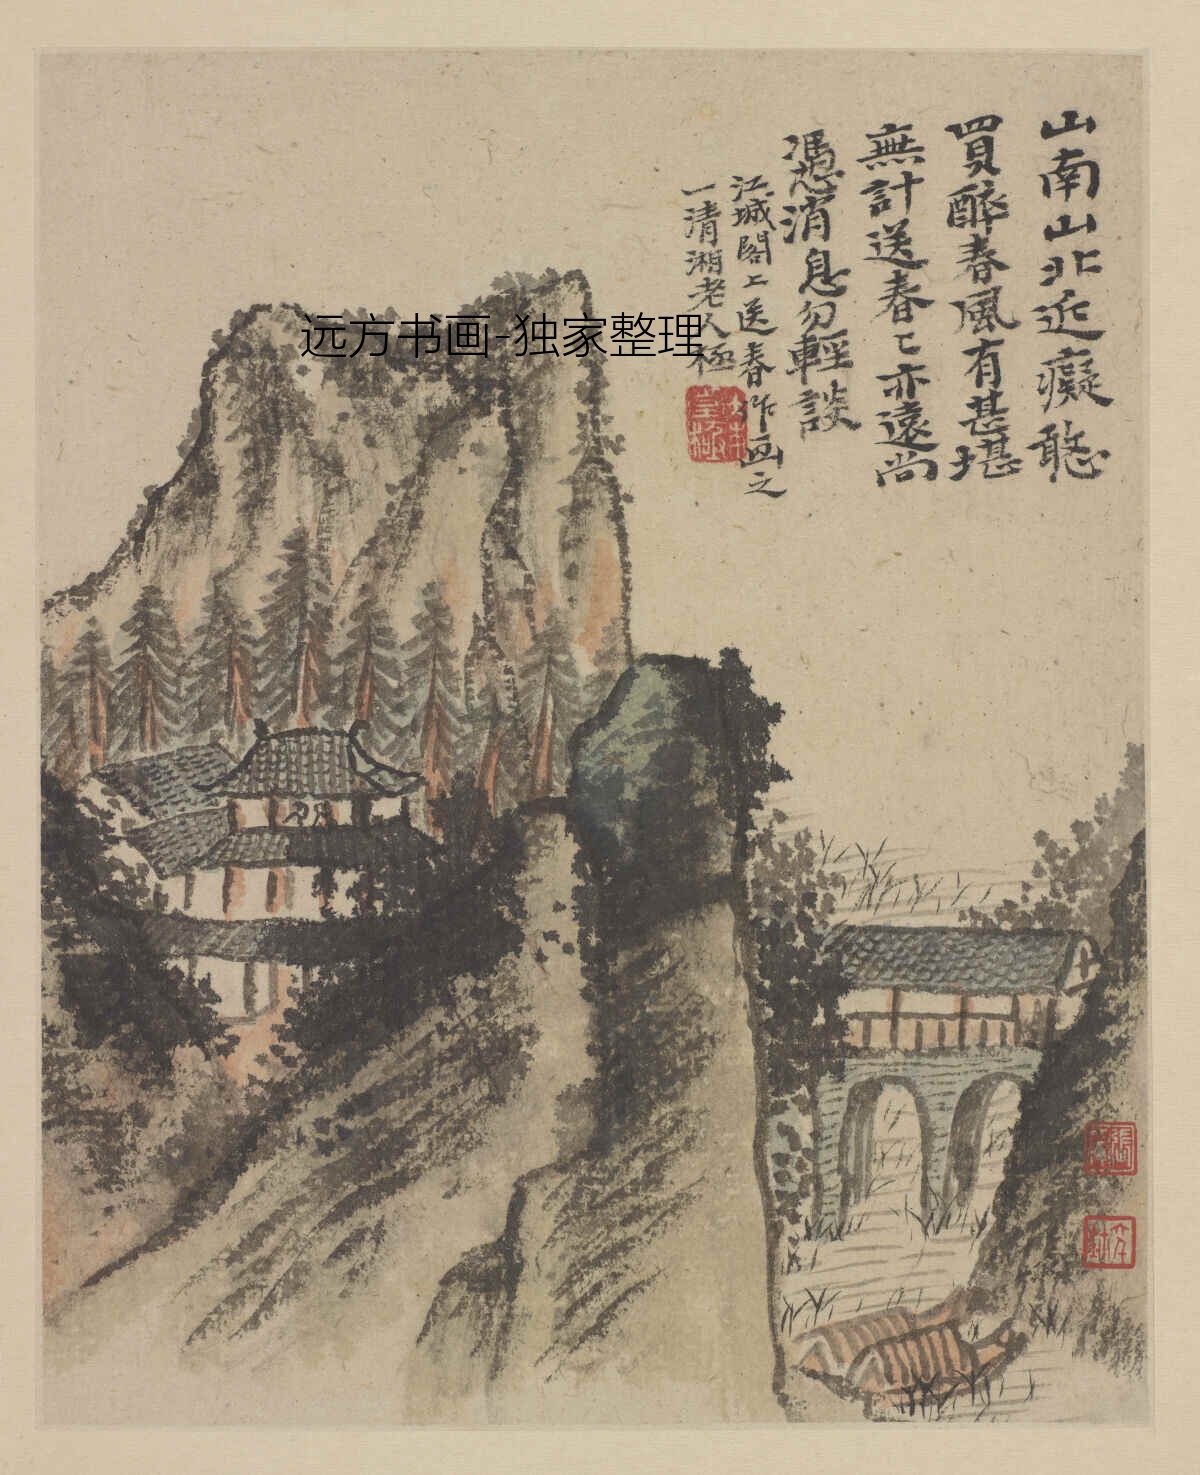 山南山北近癡憨
買醉春風有甚堪
無計送春〻亦遠尚
憑消息勿輕談
江城閣上送春作画之
一清湘老人極
远方书画-独家整理